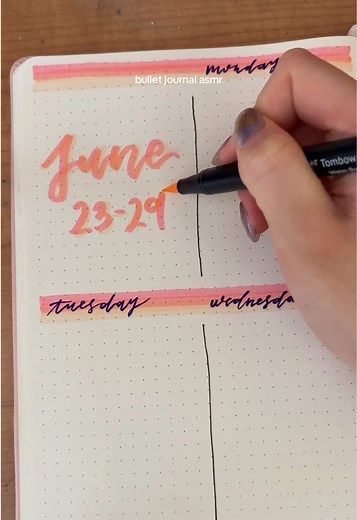 monday
bullet journal asmr
June
23-29
Tombow
tuesday
wednesda